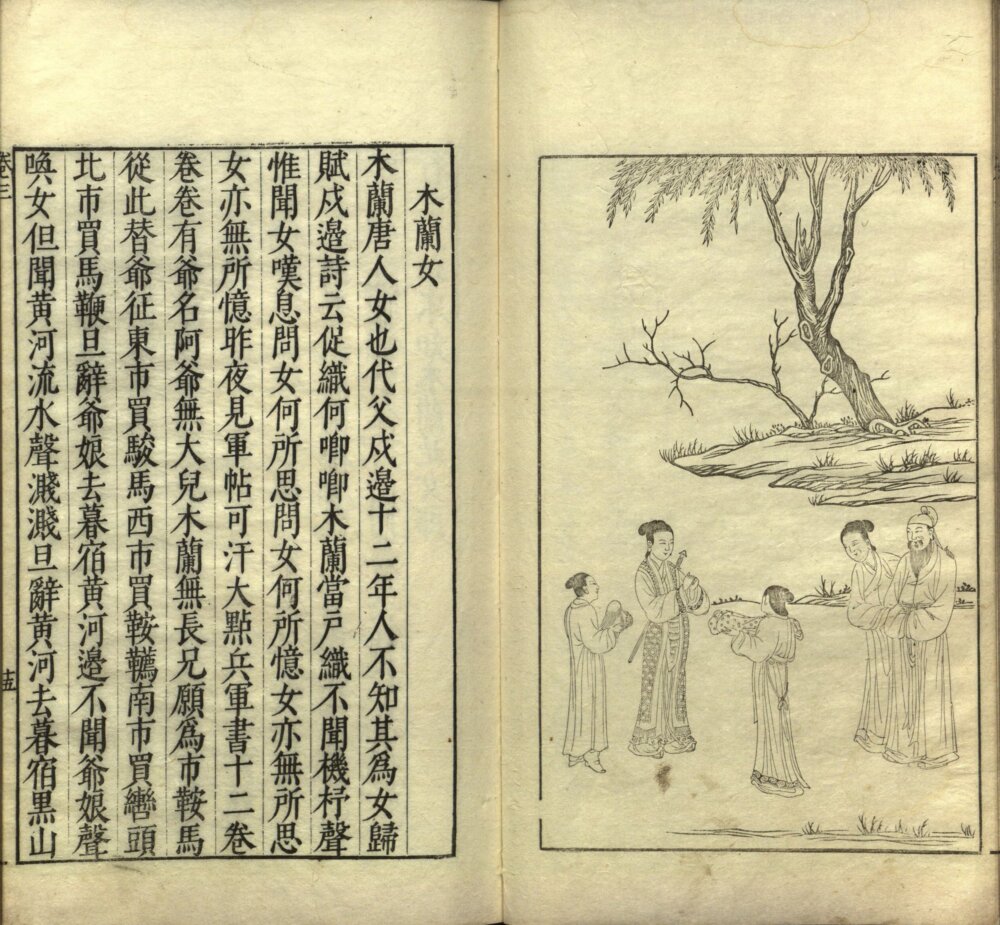 木蘭女
木蘭唐人女也代父戍邉十二年人不知其爲女歸
賦戍邉詩云促織何唧唧木蘭當戸織不聞機杼聲
惟聞女嘆息問女何所思問女何所憶女亦無所思
女亦無所憶昨夜見軍帖可汗大㸃兵軍書十二巻
巻巻有爺名阿爺無大兒木蘭無長兄願爲市鞍馬
從此替爺征東市買駿馬西市買鞍韉南市買轡頭
北市買馬鞭旦辭爺娘去暮宿黄河邉不聞爺娘聲
喚女但聞黄河流水聲濺濺旦辭黄河去暮宿黒山
巻三
十五